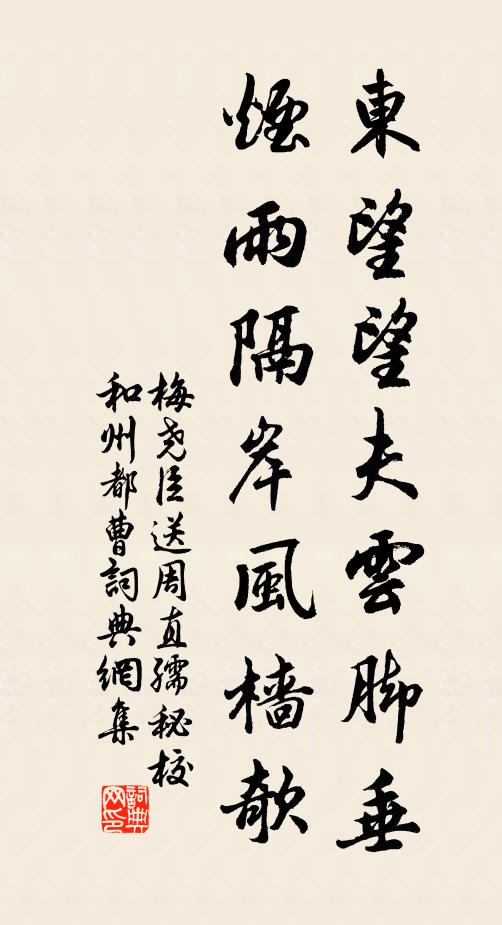 東望望夫雲脚垂
煙雨隔岸風檣欹
梅堯臣送周直孺秘校
和州都曹詞典網集
詞典网印